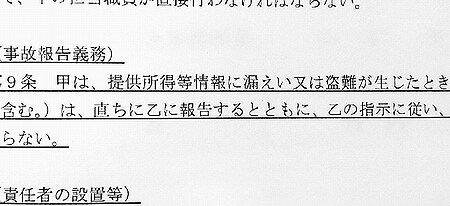 、その担当職員が直接行わなければならない。
(事故報告義務)
第9条 甲は、提供所得等情報に漏えい又は盗難が生じたとき
含む。)は、直ちに乙に報告するとともに、乙の指示に従い、
らない。
(責任者の設置等)